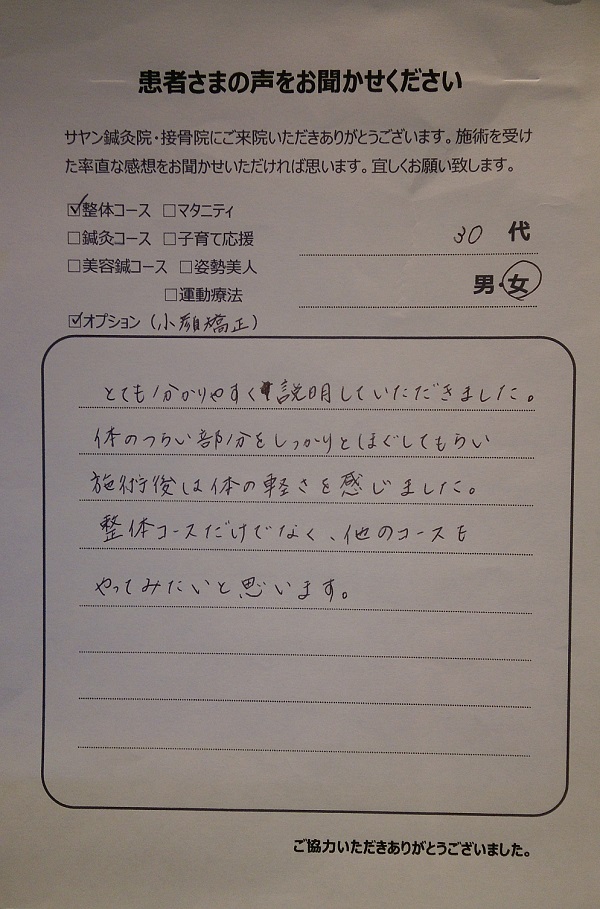 患者さまの声をお聞かせください
サヤン鍼灸院・接骨院にご来院いただきありがとうございます。施術を受け
た率直な感想をお聞かせいただければ思います。宜しくお願い致します。
☑整体コース □マタニティ
□鍼灸コース □子育て応援
30 代
□美容鍼コース □姿勢美人
男・女
□運動療法
☑オプション(小顔矯正)
とても分かりやすく説明していただきました。
体のつらい部分をしっかりとほぐしてもらい
施術後は体の軽さを感じました。
整体コースだけでなく、他のコースも
やってみたいと思います。
ご協力いただきありがとうございました。